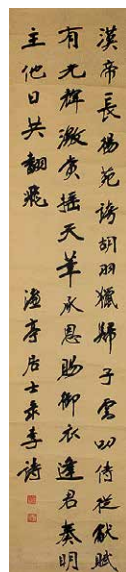 漢帝長楊苑誇胡羽獵歸子雲叨侍從獻賦
有光輝激賞搖天筆承恩賜御衣逢君奏明
主他日共翻飛 漁亭居士录李詩